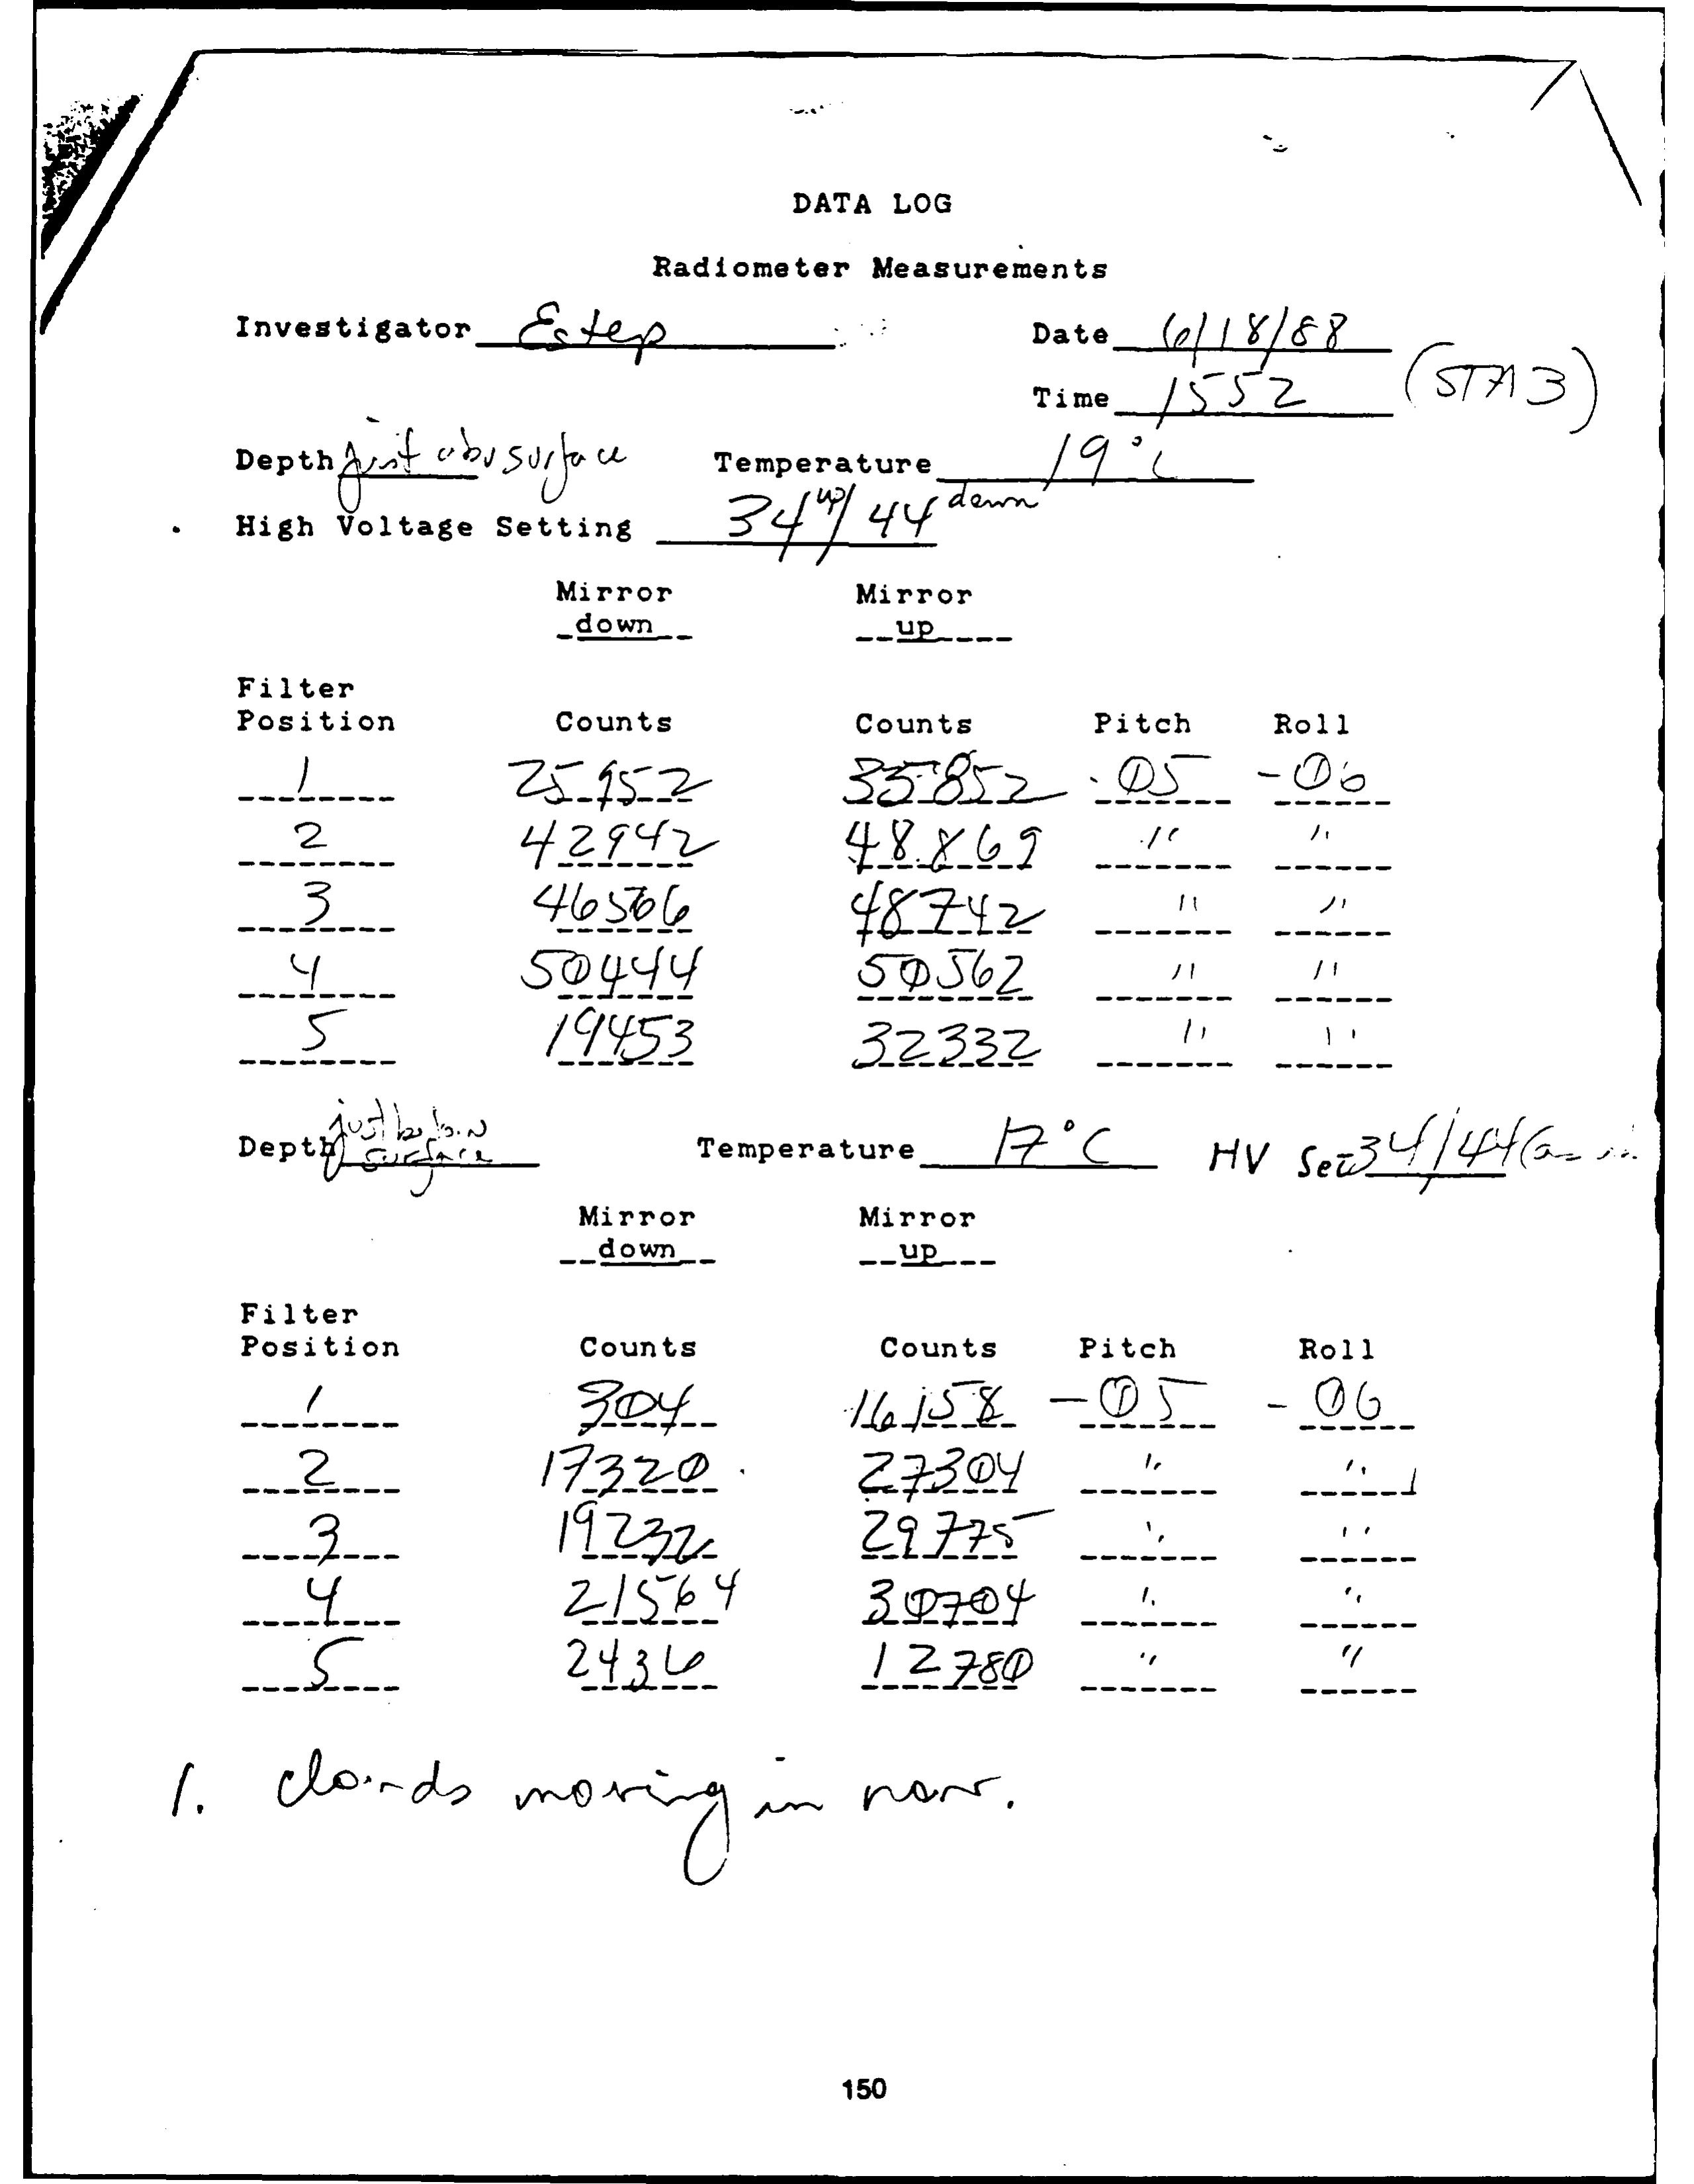 DATA LOG
Radiometer Measurements
Investigator Estep Date 6/18/88
Time 1552 (STA 3)
Depth just abv surface Temperature 19°C
High Voltage Setting 34 up/ 44 down
Mirror Mirror
down up
Filter
Position Counts Counts Pitch Roll
1 25952 35852 -05 -06
2 42942 48869 " "
3 48742 " "
4 50444 50562 " "
5 19453 32332 " "
Depth just below surface Temperature 17°C HV Set 34/44 (as
Mirror Mirror
down up
Filter
Position Counts Counts Pitch Roll
1 304 16158 -05 -06
2 17320 27304 " "
3 19232 29775 " "
4 21564 30704 " "
5 2436 12780 " "
1. clouds moving in now.
150